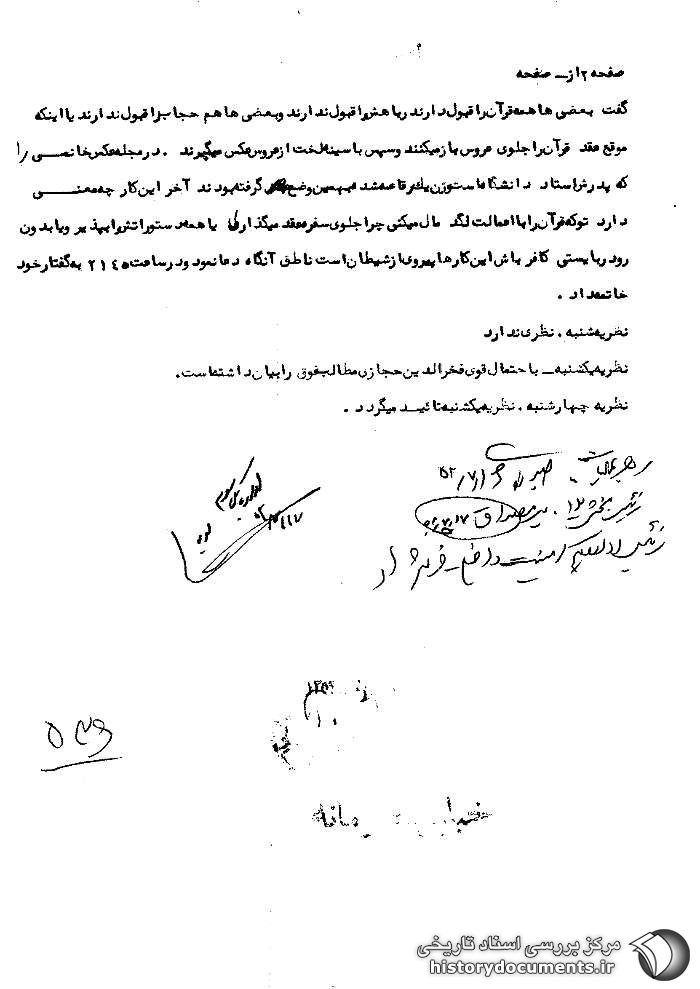 صفحه ۲ از ــ صفحه
گفت بعضی ها همه قرآن را قبول دارند ربا هش را قبول ندارند وبعضی ها هم حجاب را قبول ندارند یا اینکه
موقع عقد قرآن را جلوی عروس باز میکنند وسپس با سینه لخت از عروس عکس میگیرند . در مجله عکس خانمی را
که پدرش استاد دانشگاه است وزن یک رقاصه شد بهمین وضع گرفته بودند آخر این کار چه معنی
دارد توکه قرآن را با اعمالت لگد مال میکنی چرا جلوی سفره عقد میگذاری یا همه دستوراتش را بپذیر ویا بدون
رودربایستی کافر باش این کارها پیروی از شیطان است ناطق آنگاه دعا نمود ودر ساعت ۲۱۴۵ به گفتار خود
خاتمه داد .
نظریه شنبه . نظری ندارد
نظریه یکشنبه ــ با احتمال قوی فخرالدین حجازی مطالب فوق را بیان داشته است .
نظریه چهارشنبه . نظریه یکشنبه تائید میگردد .
رهبر عملیات
رئیس بخش ۱۲
رئیس امنیت داخلی
۱۳۵۲
۱۰
مرکز بررسی اسناد تاریخی
historydocuments.ir